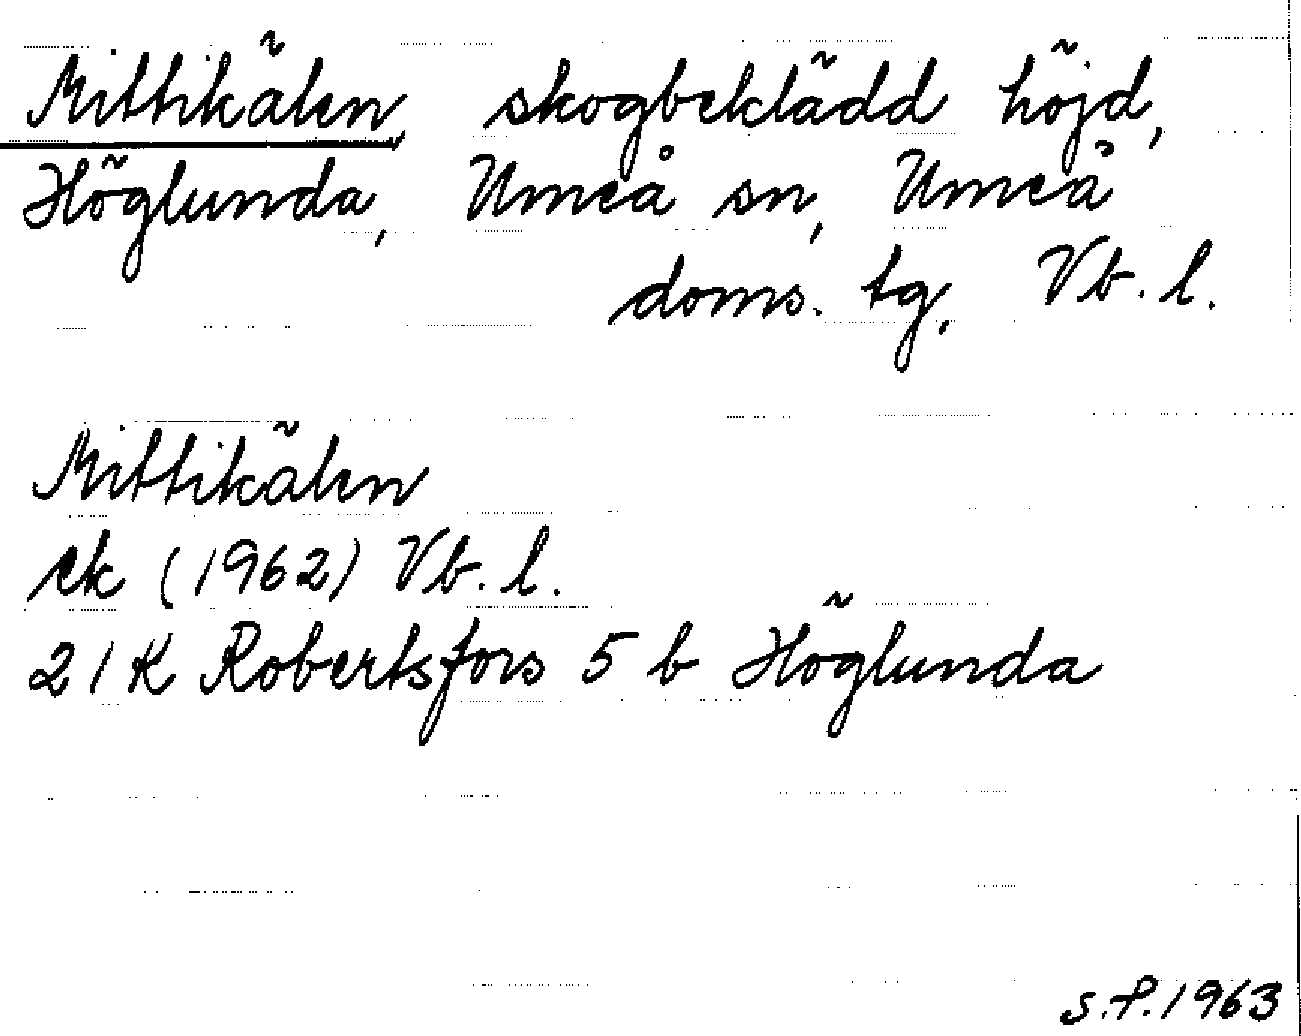 Mittikälen, skogbeklädd höjd,
Höglunda, Umeå sn, Umeå
doms. tg, Vb. l.
Mittikälen
ek (1962) Vb. l.
21 K Robertsfors 5 b Höglunda
S.P. 1963